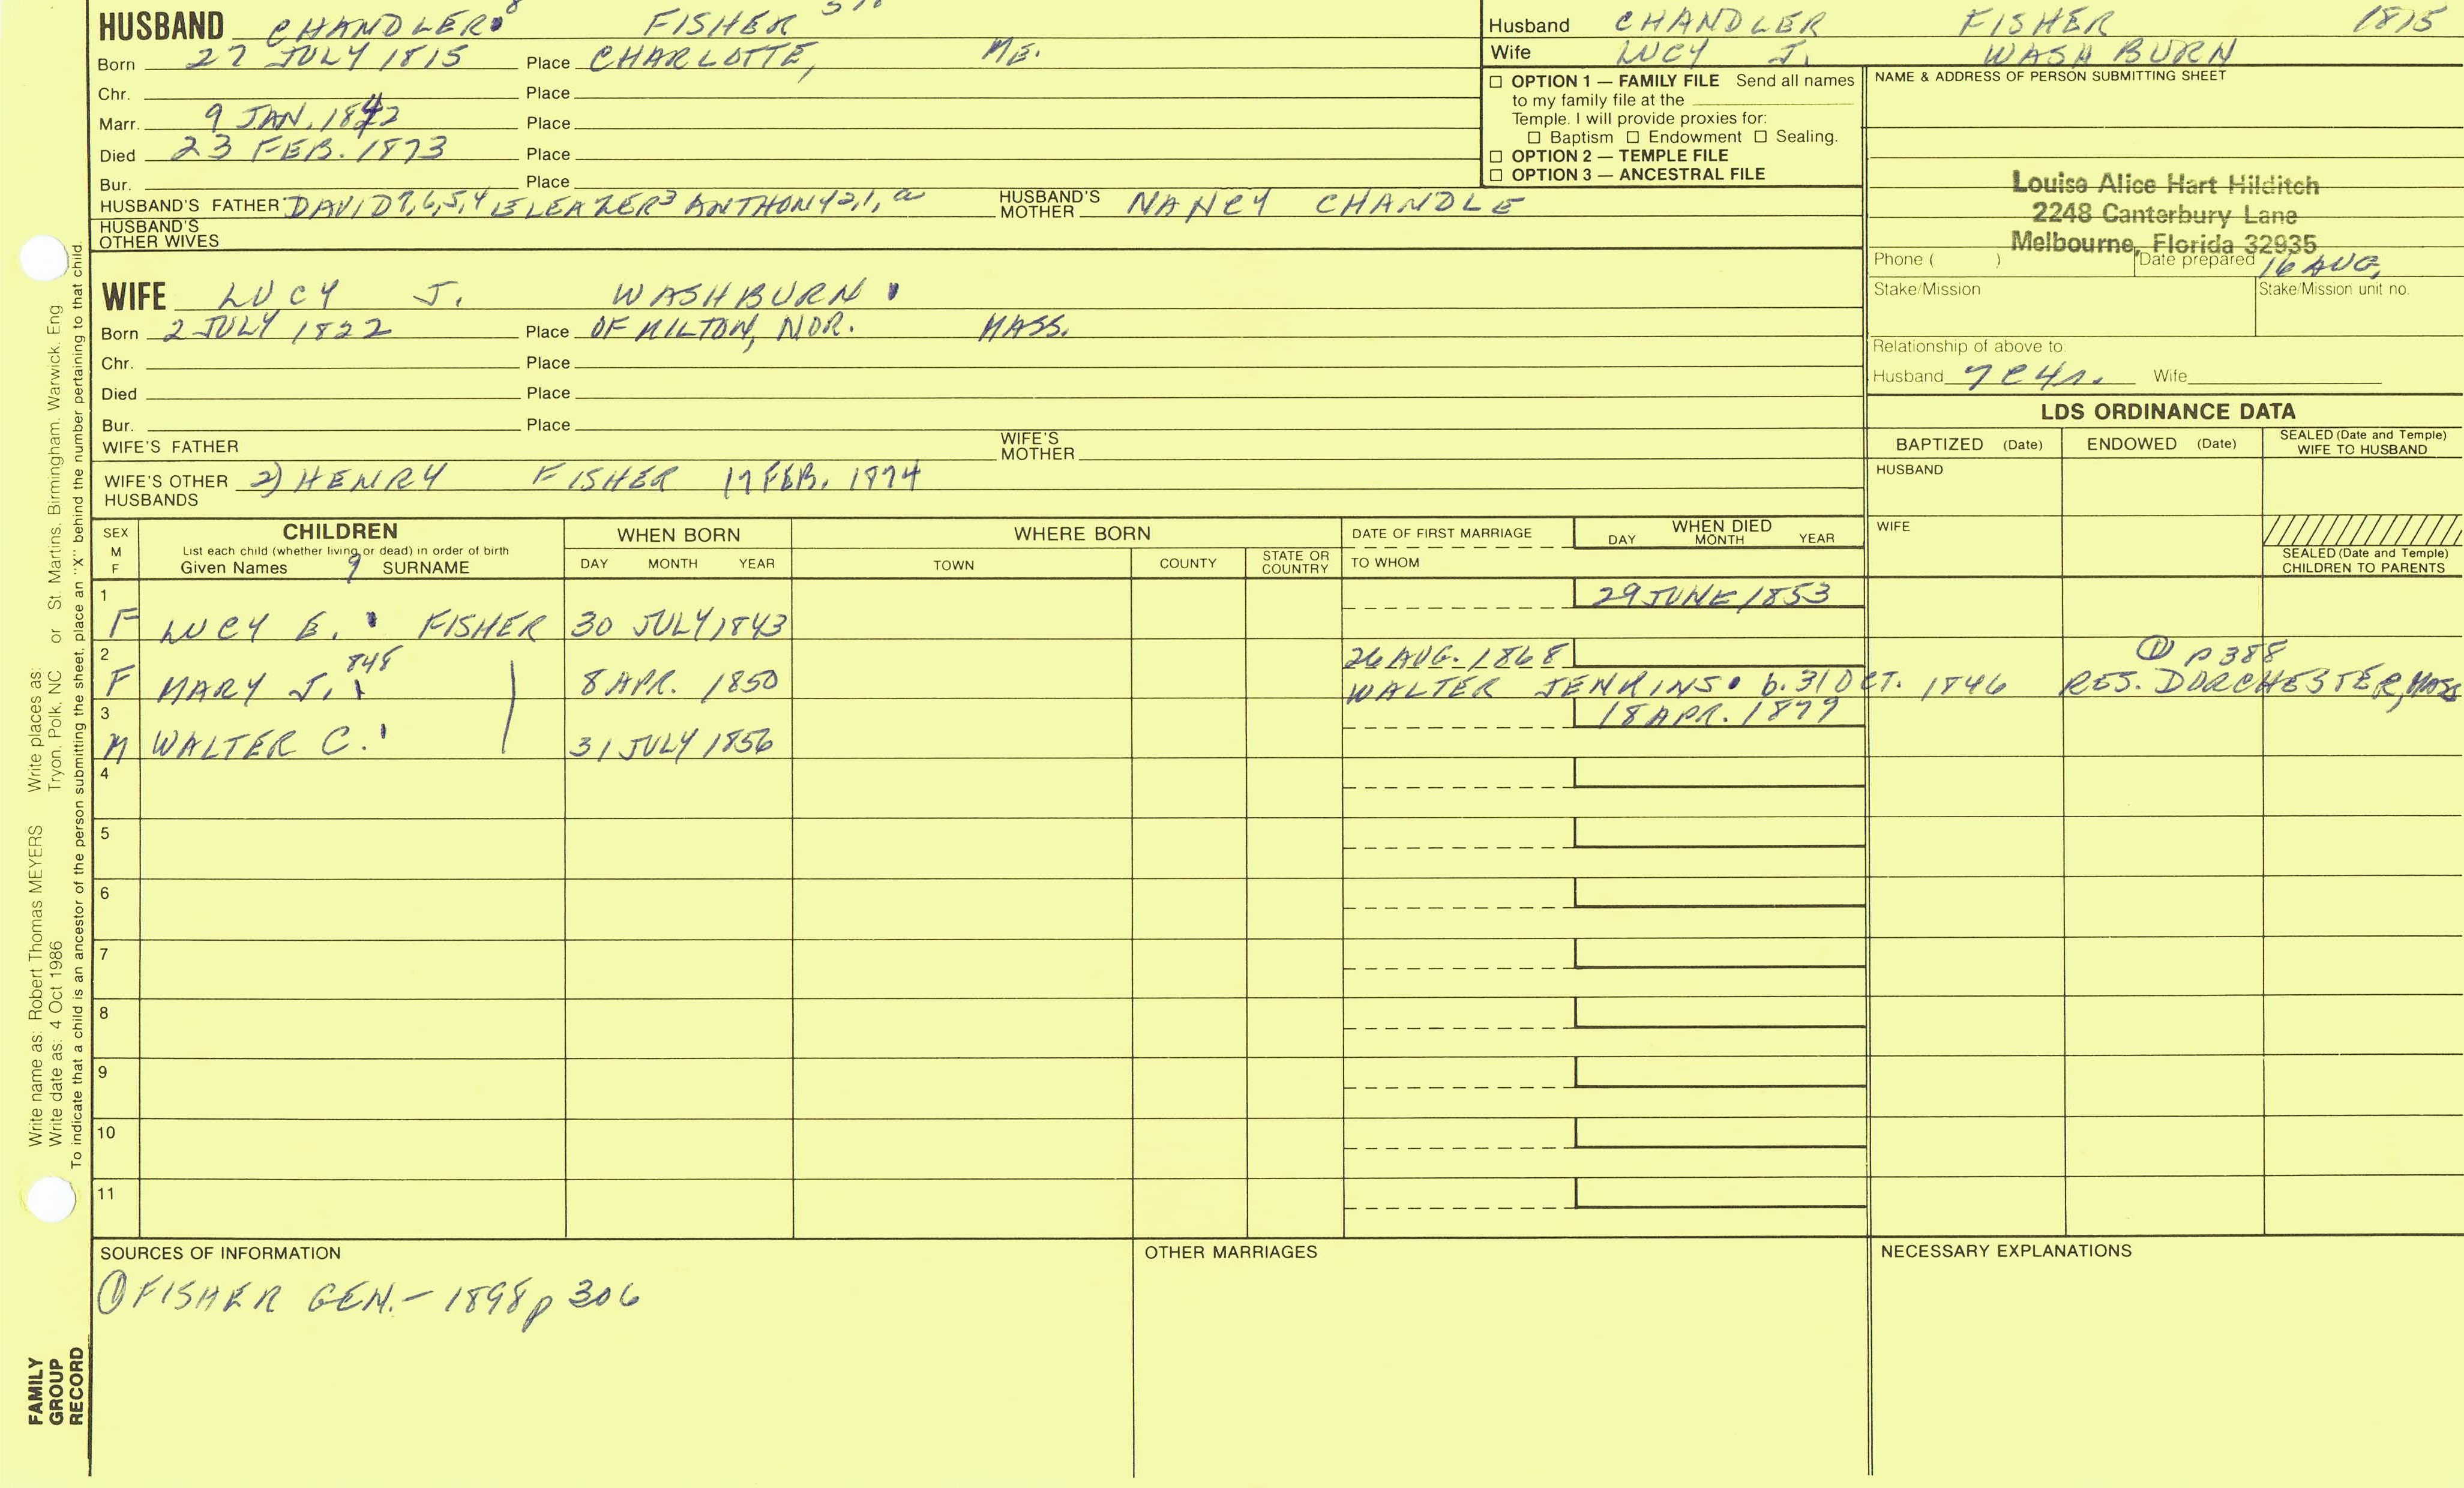 HUSBAND CHANDLER 8 FISHER
Born 27 JULY 1815 Place CHARLOTTE, ME.
Chr. Place
Marr. 9 JAN. 1842 Place
Died 23 FEB. 1873 Place
Bur. Place
HUSBAND'S FATHER DAVID 7,6,5,4 ELEAZER 3 ANTHONY 2,1, a HUSBAND'S MOTHER NANCY CHANDLE
HUSBAND'S OTHER WIVES
Husband CHANDLER FISHER 1815
Wife LUCY J. WASHBURN
☐ OPTION 1 — FAMILY FILE Send all names
to my family file at the
Temple. I will provide proxies for:
☐ Baptism ☐ Endowment ☐ Sealing.
☐ OPTION 2 — TEMPLE FILE
☐ OPTION 3 — ANCESTRAL FILE
NAME & ADDRESS OF PERSON SUBMITTING SHEET
Louise Alice Hart Hilditch
2248 Canterbury Lane
Melbourne, Florida 32935
Phone ( ) Date prepared 16 AUG.
Stake/Mission Stake/Mission unit no.
Relationship of above to:
Husband 7C4r. Wife
WIFE LUCY J. WASHBURN
Born 2 JULY 1822 Place OF MILTON, NOR. MASS.
Chr. Place
Died Place
Bur. Place
WIFE'S FATHER WIFE'S MOTHER
WIFE'S OTHER HUSBANDS 2) HENRY FISHER 17 FEB. 1874
LDS ORDINANCE DATA
BAPTIZED (Date) ENDOWED (Date) SEALED (Date and Temple) WIFE TO HUSBAND
HUSBAND
WIFE
SEALED (Date and Temple) CHILDREN TO PARENTS
SEX M F
CHILDREN
List each child (whether living or dead) in order of birth
Given Names 9 SURNAME
WHEN BORN
DAY MONTH YEAR
WHERE BORN
TOWN COUNTY STATE OR COUNTRY
DATE OF FIRST MARRIAGE
TO WHOM
WHEN DIED
DAY MONTH YEAR
1 29 JUNE 1853
F LUCY E. FISHER 30 JULY 1843
2 848 26 AUG. 1868 ① p 388
F MARY J. 8 APR. 1850 WALTER JENKINS b. 31 OCT. 1846 RES. DORCHESTER, MASS
3 18 APR. 1879
M WALTER C. 31 JULY 1856
4
5
6
7
8
9
10
11
SOURCES OF INFORMATION
① FISHER GEN. - 1898 p 306
OTHER MARRIAGES
NECESSARY EXPLANATIONS
Write name as: Robert Thomas MEYERS Write places as:
Write date as: 4 Oct 1986 Tryon, Polk, NC or St. Martins, Birmingham, Warwick, Eng
To indicate that a child is an ancestor of the person submitting the sheet, place an "X" behind the number pertaining to that child.
FAMILY
GROUP
RECORD